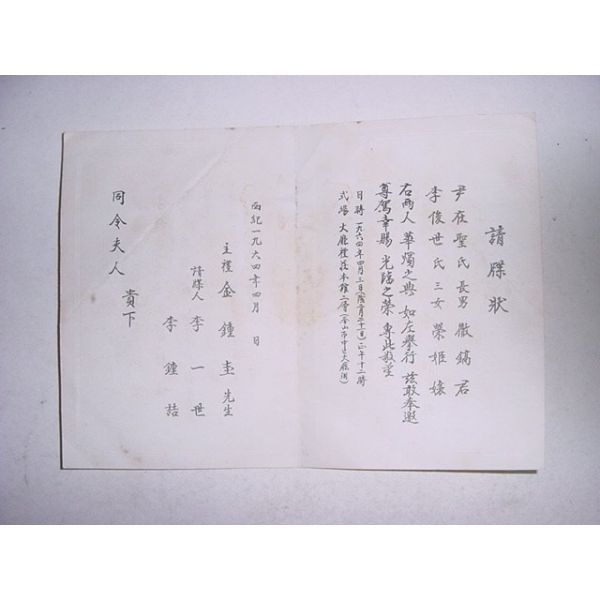 請牒狀
尹在聖氏長男 徹鎬 君
李俊世氏三女 榮姬 孃
右兩人 華燭之典 如左擧行 玆敢奉邀
尊駕幸賜 光臨之榮 專此敬望
日時 一九六四年四月三日 正午十二時
式場 大 禮 本館二層
西紀一九六四年四月 日
主禮 金鍾圭 先生
請牒人 李一世
李鍾喆
同令夫人 貴下